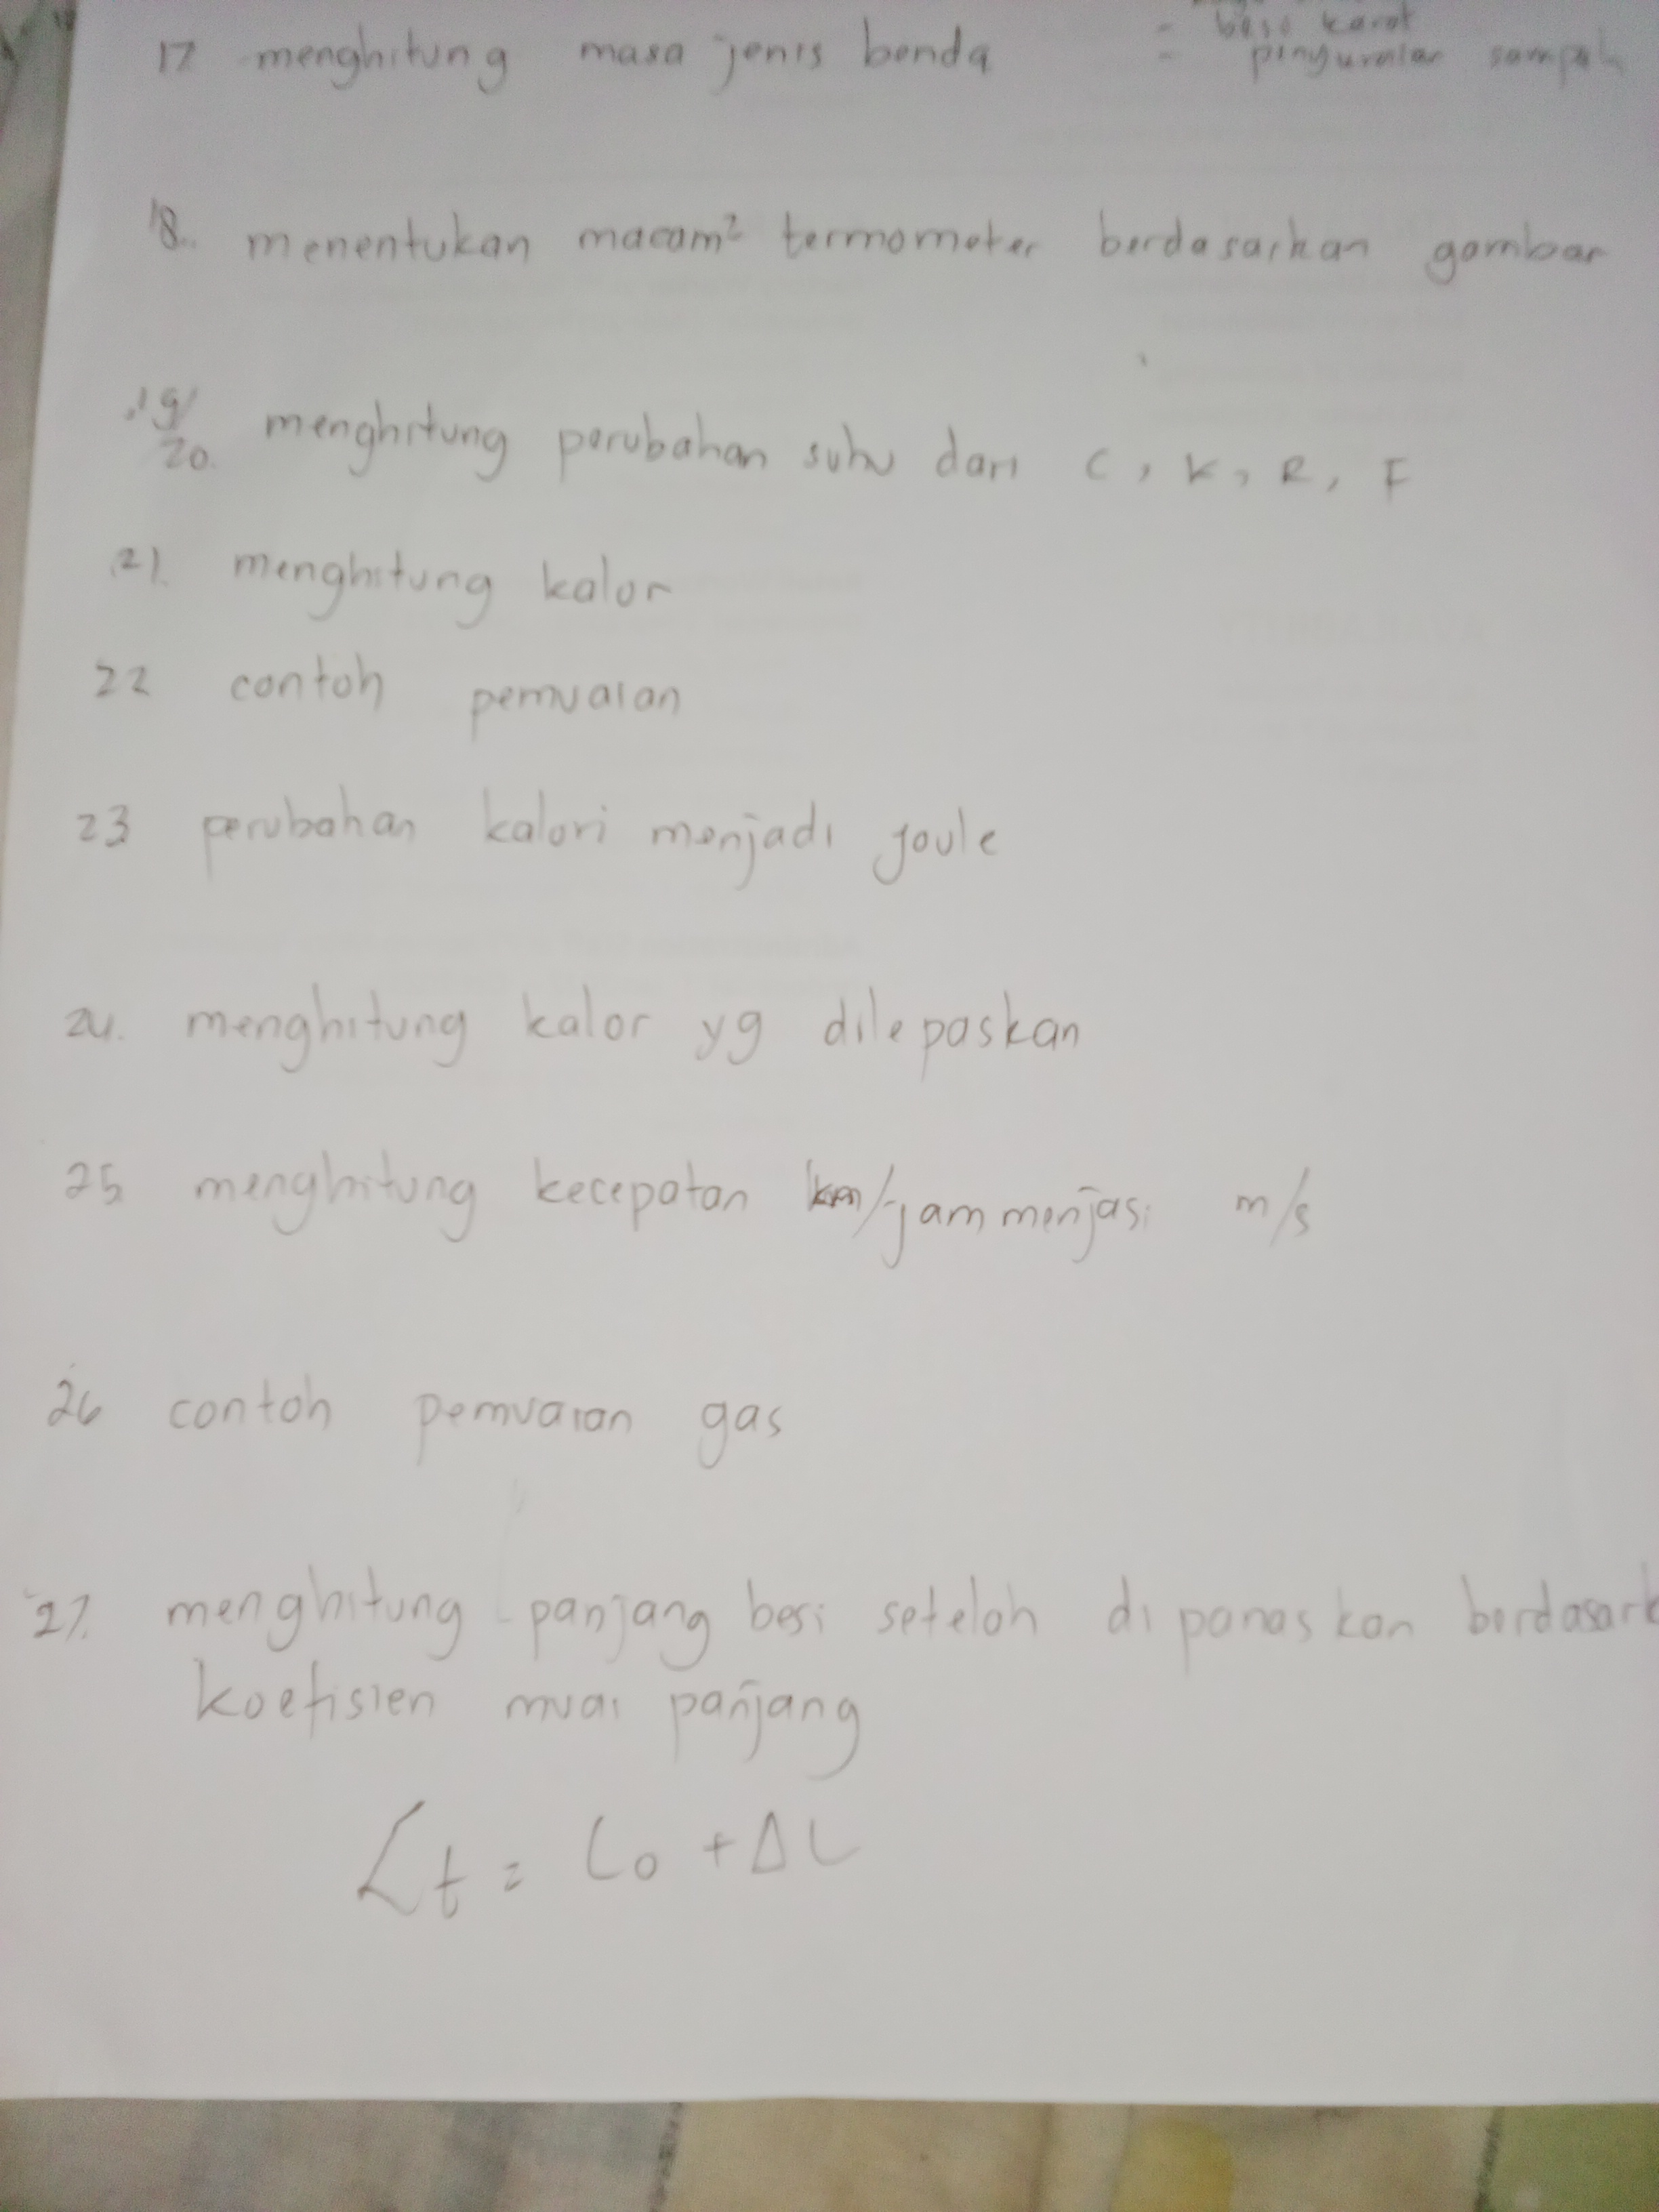 - besi karat
17 menghitung masa jenis benda
- penguraian sampah
18. menentukan macam² termometer berdasarkan gambar
19/
20. menghitung perubahan suhu dari C, K, R, F
21. menghitung kalor
22 contoh pemuaian
23 perubahan kalori menjadi joule
24. menghitung kalor yg dilepaskan
25 menghitung kecepatan km/jam menjasi m/s
26 contoh pemuaian gas
27. menghitung panjang besi setelah dipanaskan berdasark
koefisien muai panjang
Lt = Lo + ΔL